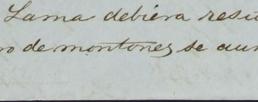 Lama debiera resu
ro de montones se aum